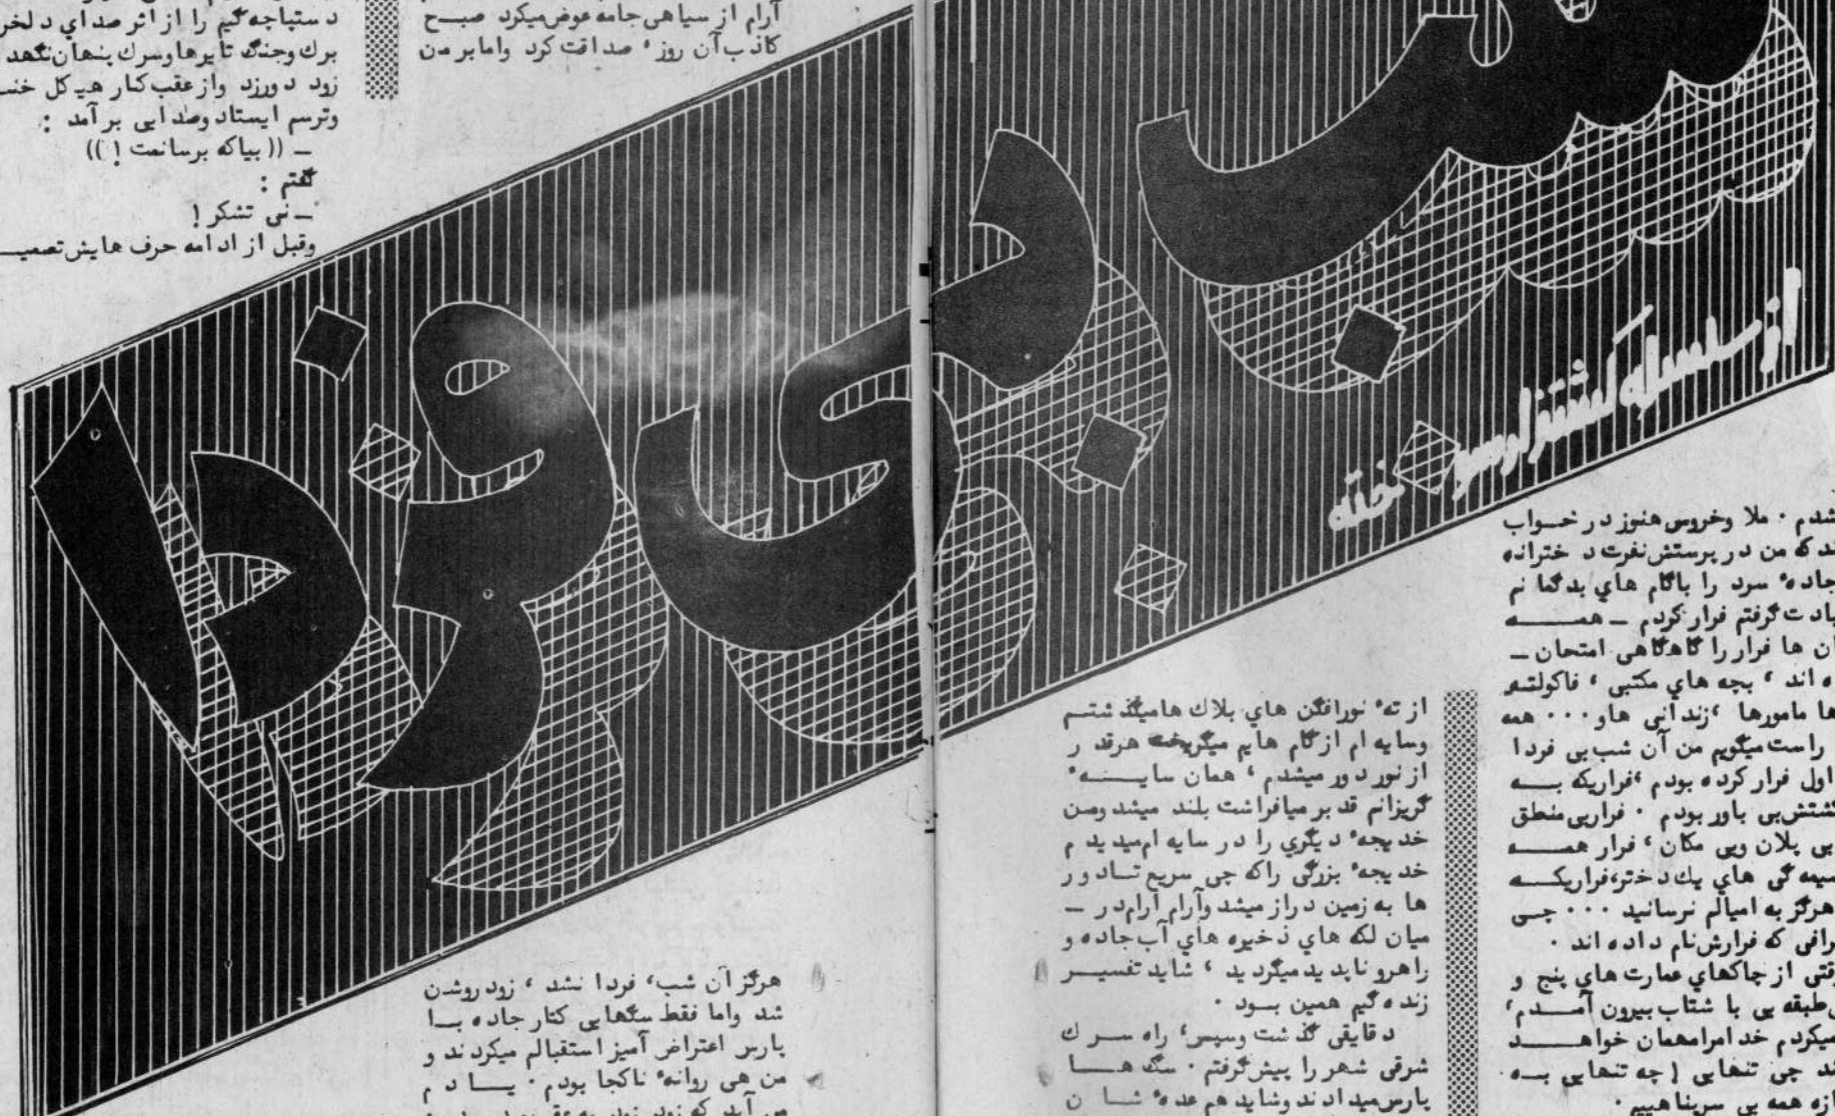 شب بی فردا
از سلسله کشتزار سوخته
شدم ۰ ملا وخروس هنوز در خــواب
که من در پرستش نفرت د ختراده
جاده ٔ سرد را باگام هاي بدگما نم
گرفتم فرار کردم ــ همــــه
ها فرار را گاهگاهی امتحان ــ
اند ، بچه هاي مکتبی ، فاکولته
مامورها ،زندانی هاو ۰۰۰ همه
راست میگویم من آن شب بی فردا
اول فرار کرده بودم ،فراریکه بــه
بی باور بودم ۰ فراریی منطق
بی پلان وبی مکان ، فرار همــــه
گی هاي یك دختر،فراریکــــه
هرگز به امیالم نرسانید ۰۰۰ چــی
که فرارش نام داده اند ۰
از چاکهاي عمارت هاي پنج و
طبقه یی با شتاب بیرون آمــدم ،
میکردم خدامرامهمان خواهــد
چی تنهایی ! چه تنهایی بــه
همه بی سرپناهییم ۰
از ته ٔ نورافگن هاي بلاك هامیگذ شتــم
وسایه ام از گام هایم میگریخت هرقد ر
از نور دور میشدم ، همان سایـــه ٔ
گریزانم قد بر میافراشت بلند میشد ومن
خدیجه ٔ دیگري را در سایه ام میدید م
خدیجه ٔ بزرگی راکه چی سریع تــاد ور
ها به زمین دراز میشد وآرام آرام در ــ
میان لکه هاي ذخیره هاي آب جاده و
راهرو ناپدید میگردید ، شاید تفسیــر
زنده گیم همین بــود ۰
دقایقی گذشت وسپس ، راه ســرك
شرقی شهر را پیش گرفتم ۰ سگ هــــا
پارس میدادند وشاید هم عده ٔ شــا ن
آرام از سیاهی جامه عوض میکرد صبــح
کاذب آن روز ٔ صداقت کرد واما بر من
هرگز آن شب ، فردا نشد ، زود روشن
شد واما فقط سگهایی کنار جاده بــا
پارس اعتراض آمیز استقبالم میکردند و
من هی روانه ٔ ناکجا بودم ۰ یــاد م
می آید که زود زود به
دستپاچه گیم را از اثر صداي دلخر
برك وجنگ تایرها وسرك پنهان نگهد
زود دورزد واز عقب کنار هیکل
وترسم ایستاد وصدایی برآمد :
ــ (( بیاکه برسانمت ! ))
گفتم :
ــ نی تشکر !
وقبل از ادامه حرف هایش